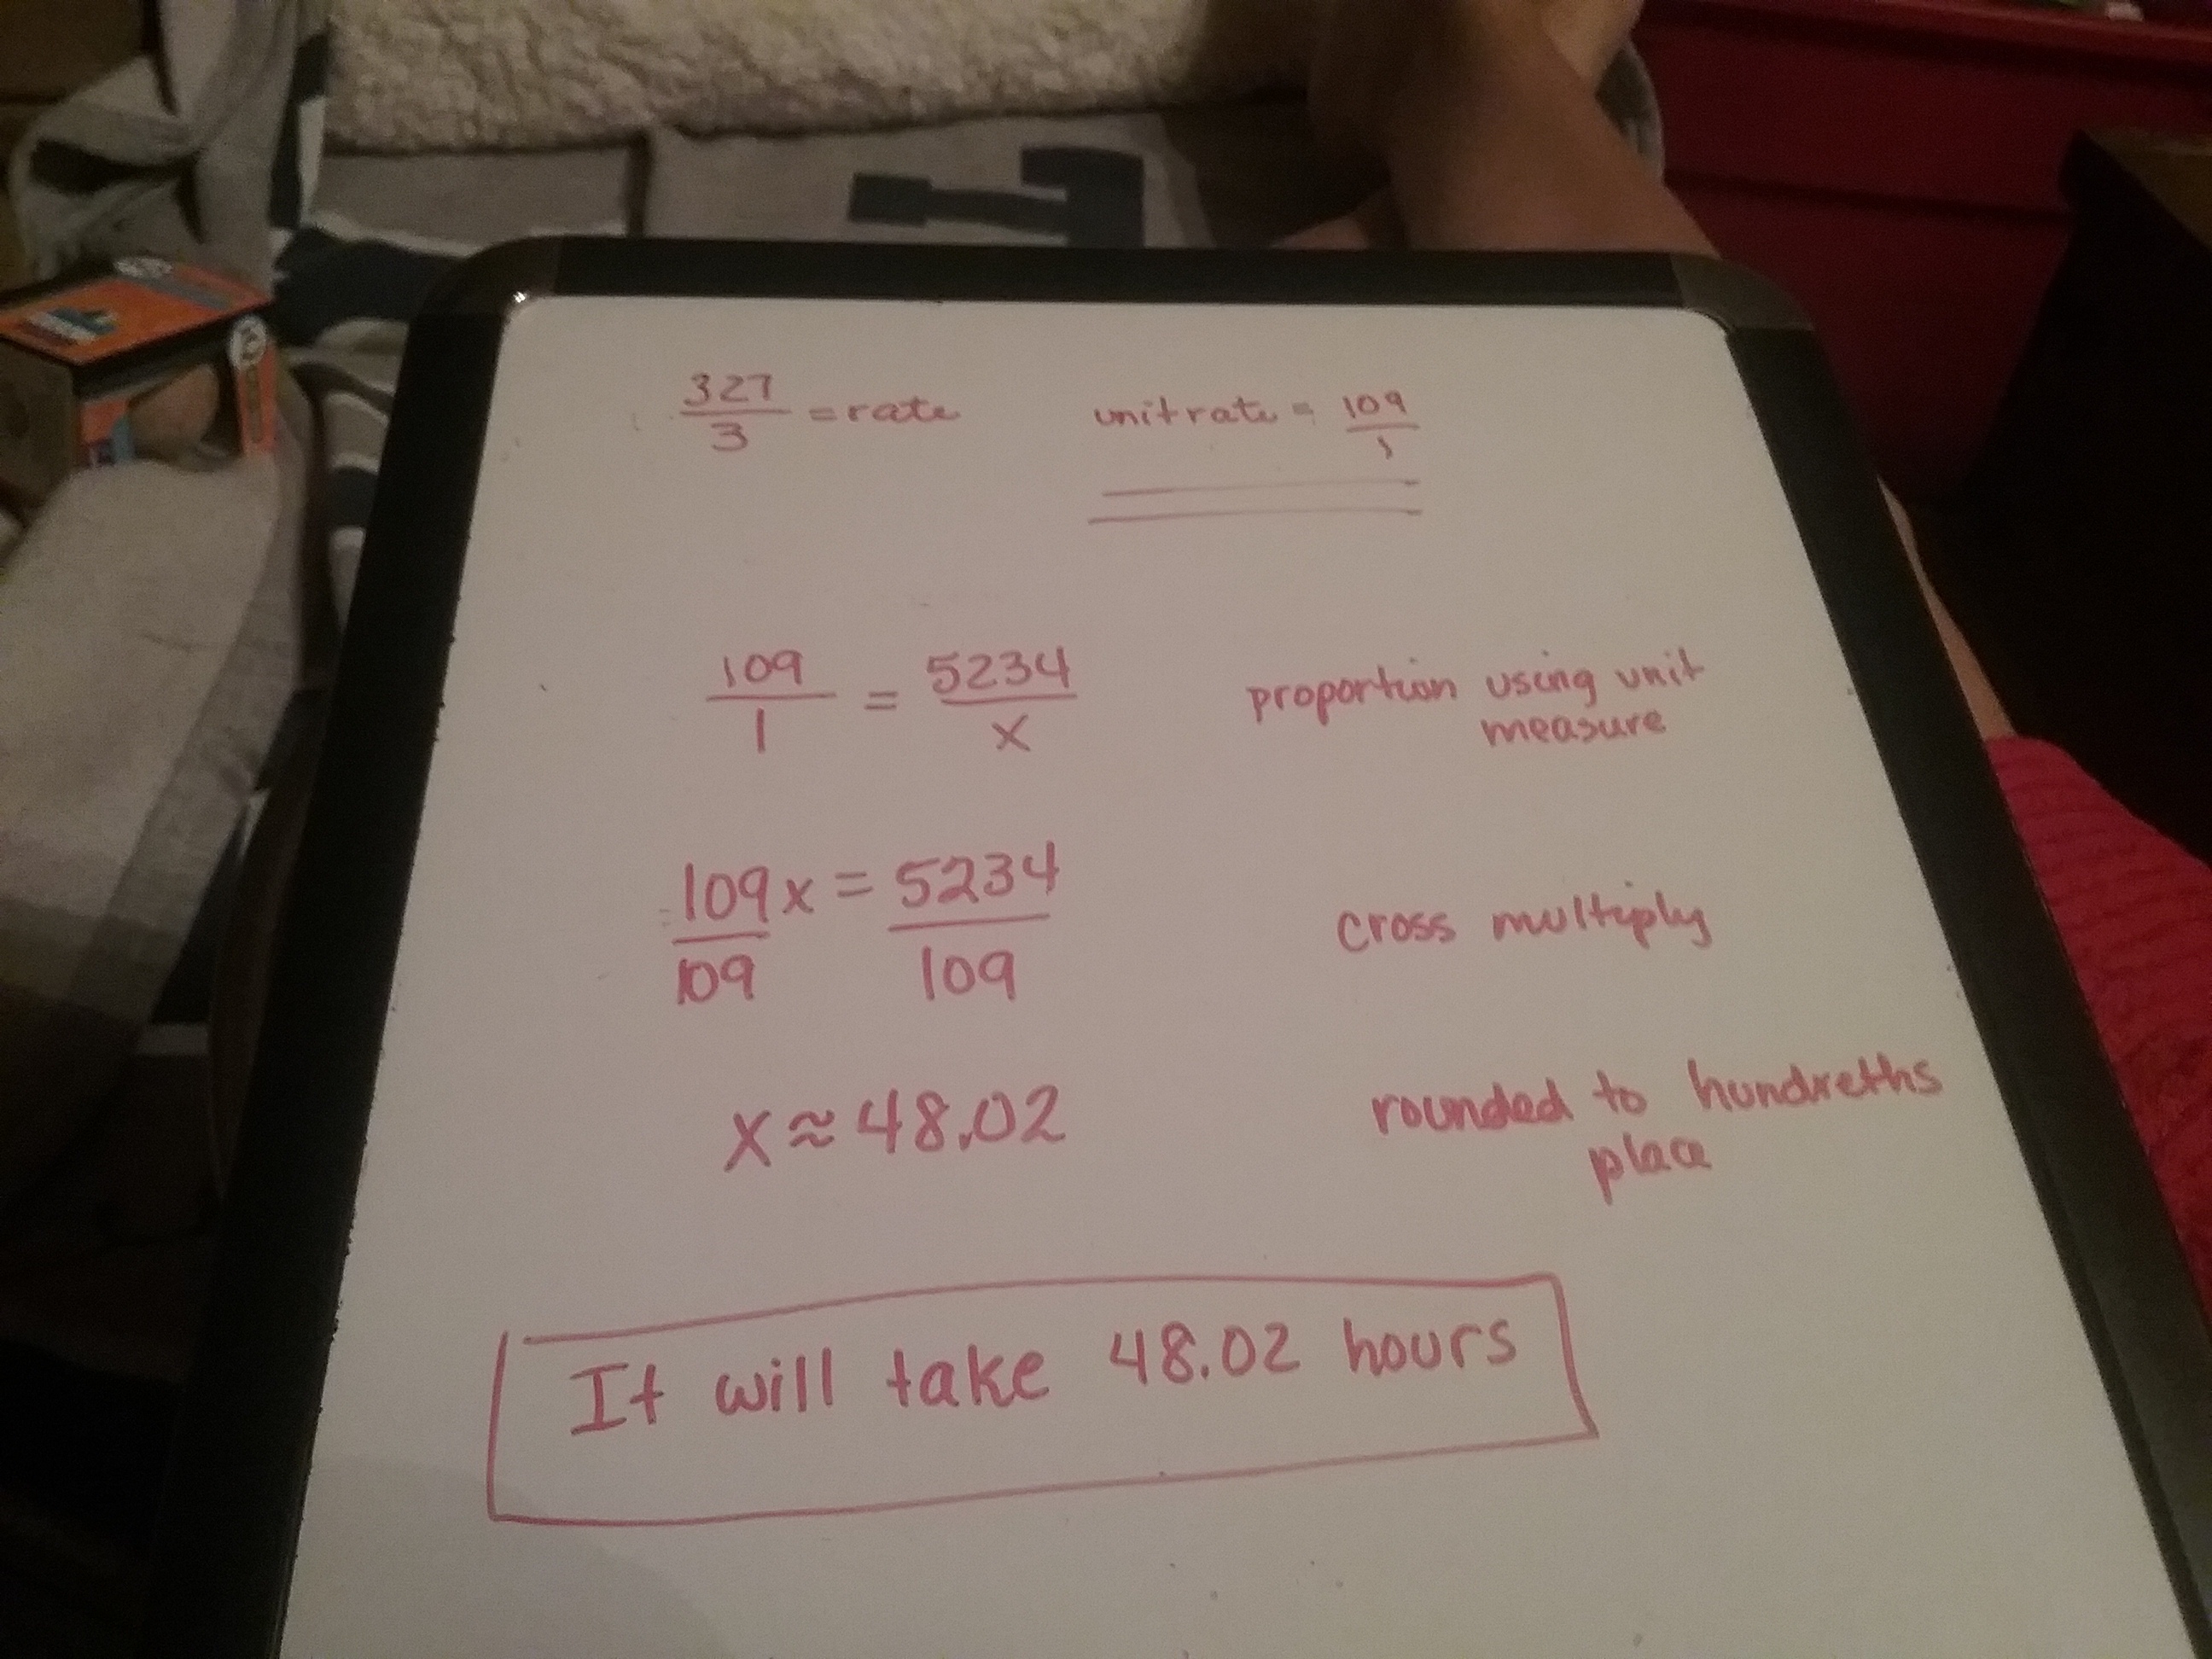 327
3
= rate
unit rate = 109
1
109
1
=
5234
x
proportion using unit
measure
109x = 5234
109
109
cross multiply
x ≈ 48.02
rounded to hundreths
place
It will take 48.02 hours